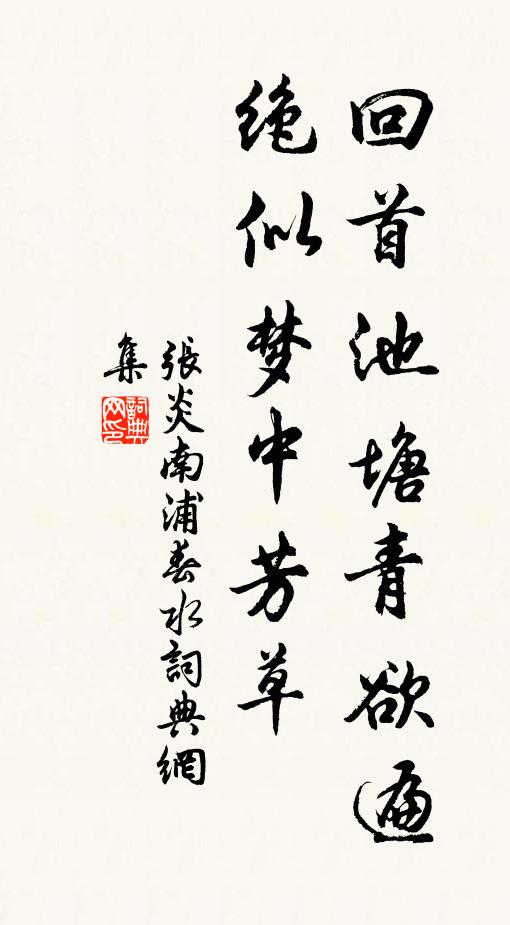 回首池塘青欲遍
绝似梦中芳草
張炎南浦春水詞典網
集
詞典
网印